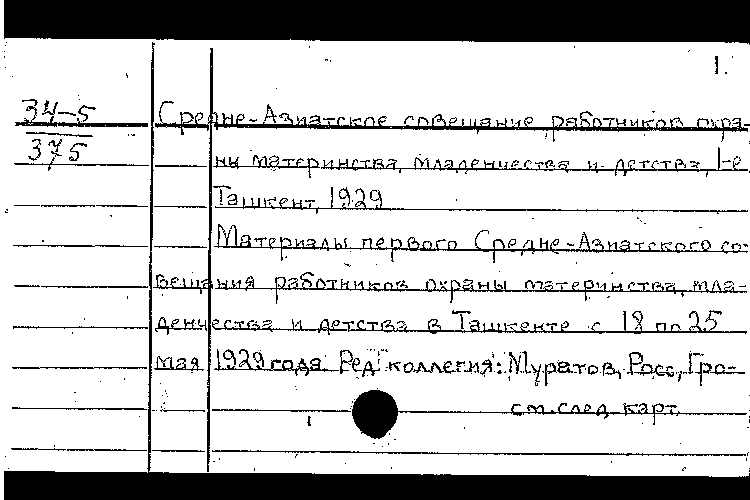 1.
34-5
375
Средне-Азиатское совещание работников охра-
ны материнства, младенчества и детства, 1-е
Ташкент, 1929
Материалы первого Средне-Азиатского со-
вещания работников охраны материнства, мла-
денчества и детства в Ташкенте с 18 по 25
мая 1929 года. Ред. коллегия: Муратов, Росс, Гро-
см. след. карт.